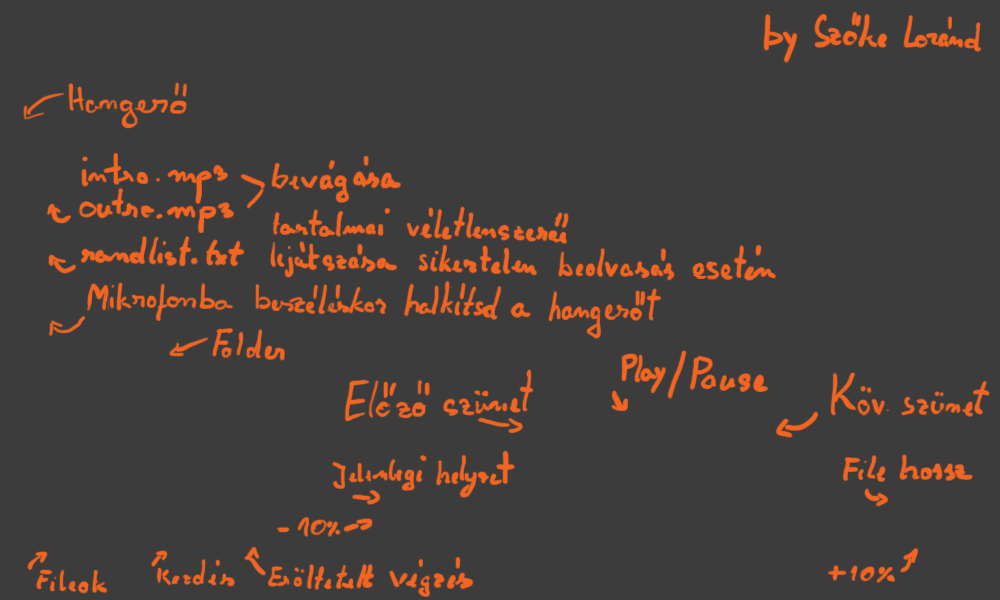 by Szőke Loránd
Hangerő
intro.mp3
outro.mp3
bevágása
randlist.txt
tartalmai véletlenszerű
lejátszása sikertelen beolvasás esetén
Mikrofonba beszéléskor halkítsd a hangerőt
Folder
Play/Pause
Előző szünet
Köv. szünet
Jelenlegi helyzet
File hossz
-10%
Fileok
Kezdés
Erőltetett végzés
+10%